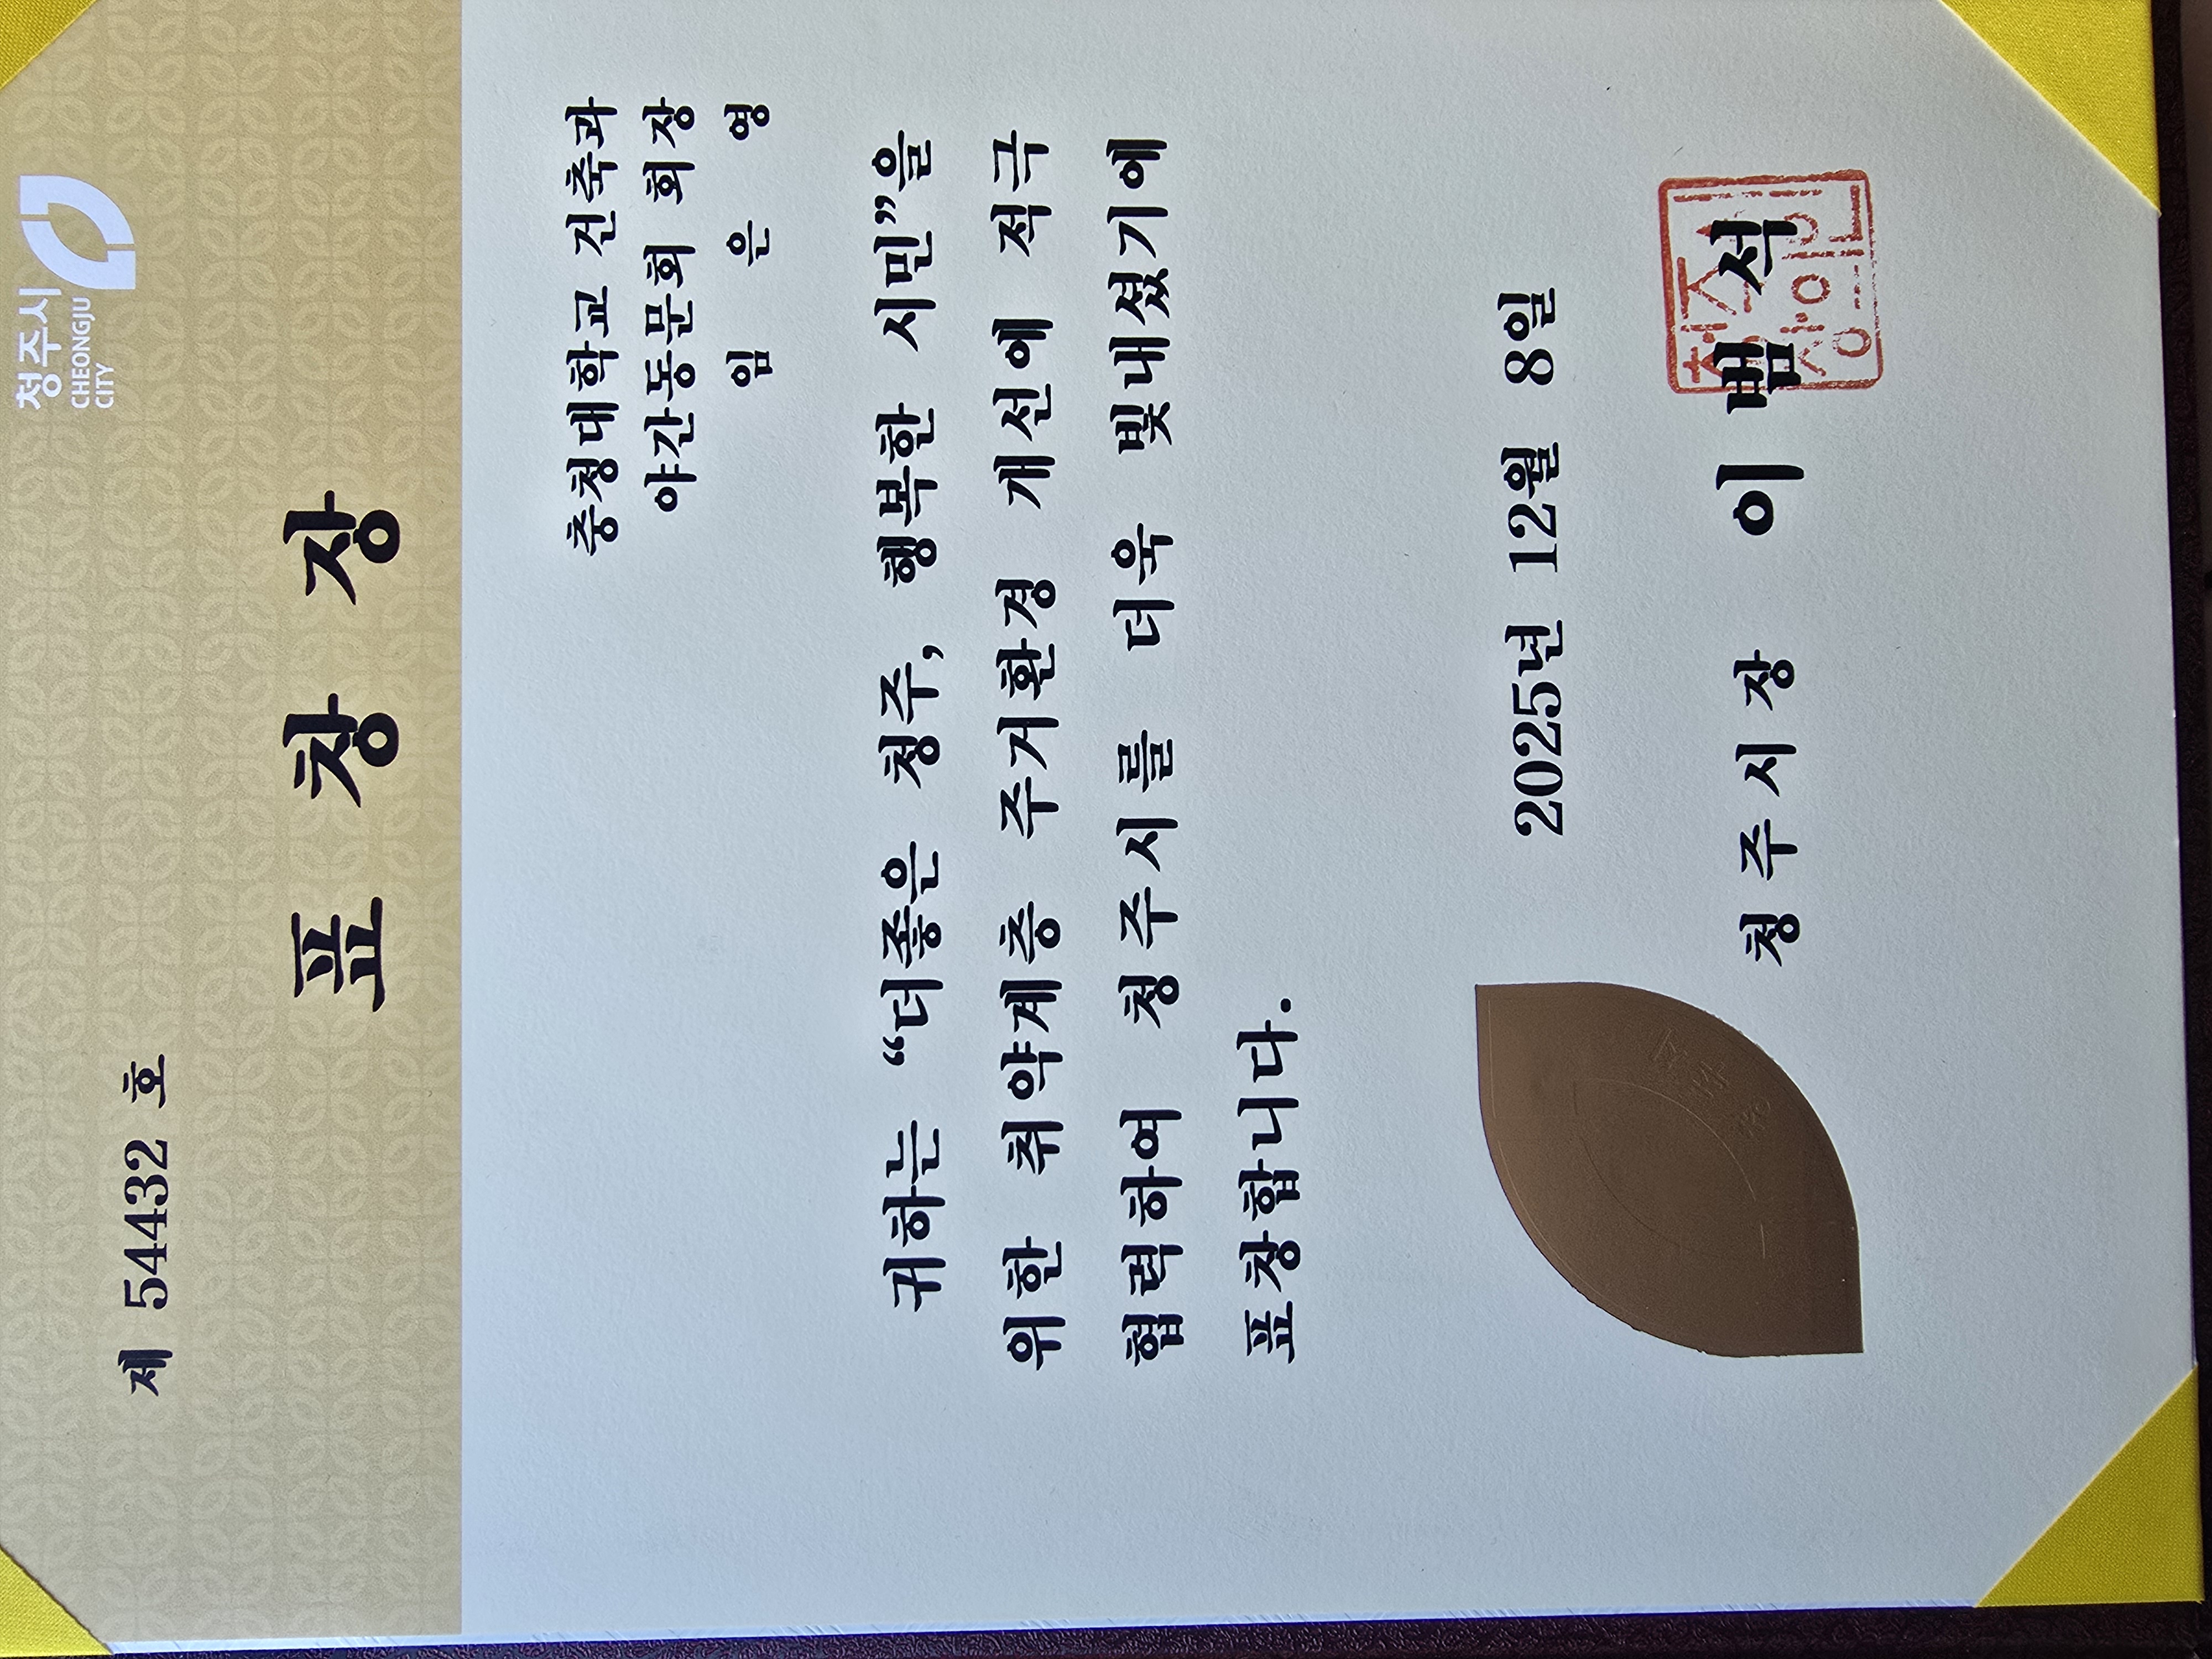 제 54432 호
청주시
CHEONGJU
CITY
표 창 장
충청대학교 건축과
야간동문회 회장
임 은 영
귀하는 “더좋은 청주, 행복한 시민”을
위한 취약계층 주거환경 개선에 적극
협력하여 청주시를 더욱 빛내셨기에
표창합니다.
2025년 12월 8일
청주시장 이범석